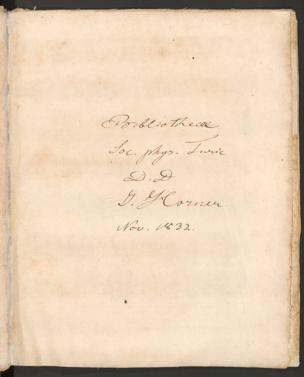 Bibliothecae
Soc. phys. Turic
D. D
J. Horner
Nov. 1832.